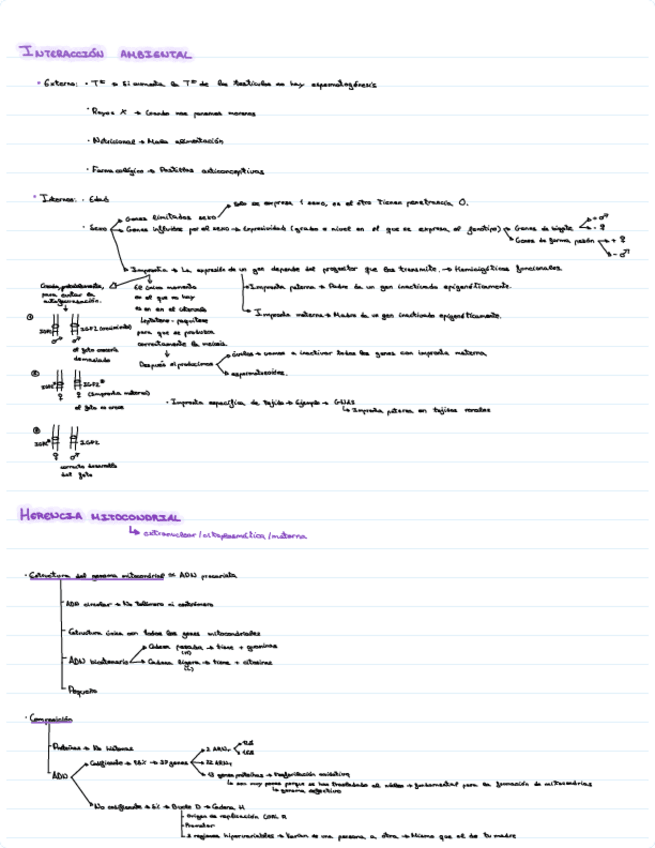 INTERACCIÓN AMBIENTAL
· Externa: · Tª → Si aumenta la Tª de los testículos no hay espermatogénesis
· Rayos X → Cuando nos ponemos morenos
· Nutricional → Mala alimentación
· Farmacológico → Pastillas anticonceptivas
· Interna: · Edad
Sólo se expresa 1 sexo, en el otro tienen penetrancia 0.
· Sexo → Genes limitados sexo
Genes influidos por el sexo → Expresividad (grado o nivel en el que se expresa el genotipo) → Genes de bigote → + ♂ - ♀
Genes de forma pezón → + ♀ - ♂
Impronta → La expresión de un gen depende del progenitor que los transmite. → Hemicigóticos funcionales.
Impronta paterna → Padre da un gen inactivado epigenéticamente.
Impronta materna → Madre da un gen inactivado epigenéticamente.
para evitar la
Es único momento
en el que no hay
Leptoteno - paquiteno
para que se produzca
correctamente la meiosis.
↓
Después al producirnos
óvulos → vamos a inactivar todos los genes con impronta materna.
espermatozoides.
①
IGF2 (crecimiento)
♂ ♂
el feto crecería
demasiado
②
IGF2*
♀ ♀ (impronta materna)
el feto no crece
· Impronta específica de tejido → Ejemplo → GNAS
↳ Impronta paterna en tejidos renales
③
IGF2
♀ ♂
correcto desarrollo
del feto
HERENCIA MITOCONDRIAL
↳ extranuclear / citoplasmática / materna
· Estructura del genoma mitocondrial ≈ ADN procariota
ADN circular → No telómero ni centrómero
Estructura única con todos los genes mitocondriales
ADN bicatenario → Cadena pesada → tiene + guaninas
(H)
Cadena ligera → tiene + citosinas
(L)
Pequeño
· Composición
Proteínas → No histonas
ADN
Codificante → 37 genes → 2 ARNr → 12S 16S
22 ARNt
13 genes proteínas → Fosforilación oxidativa
↳ son muy pocos porque se han trasladado al núcleo → fundamental para la formación de mitocondrias
↳ genoma defectivo
No codificante → Bucle D → Cadena H
Origen de replicación
Promotor
regiones hipervariables → Varían de una persona a otra → Mismo que el de tu madre